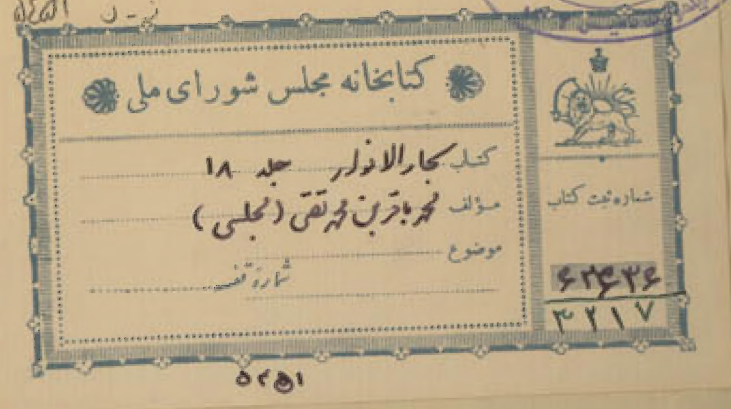 کتابخانه مجلس شورای ملی
کتاب بحار الانوار جلد ۱۸
مؤلف محمد باقر بن محمد تقی (مجلسی)
موضوع
شماره قفسه
شماره ثبت کتاب
۶۳۶۳۶
۳۲۱۷